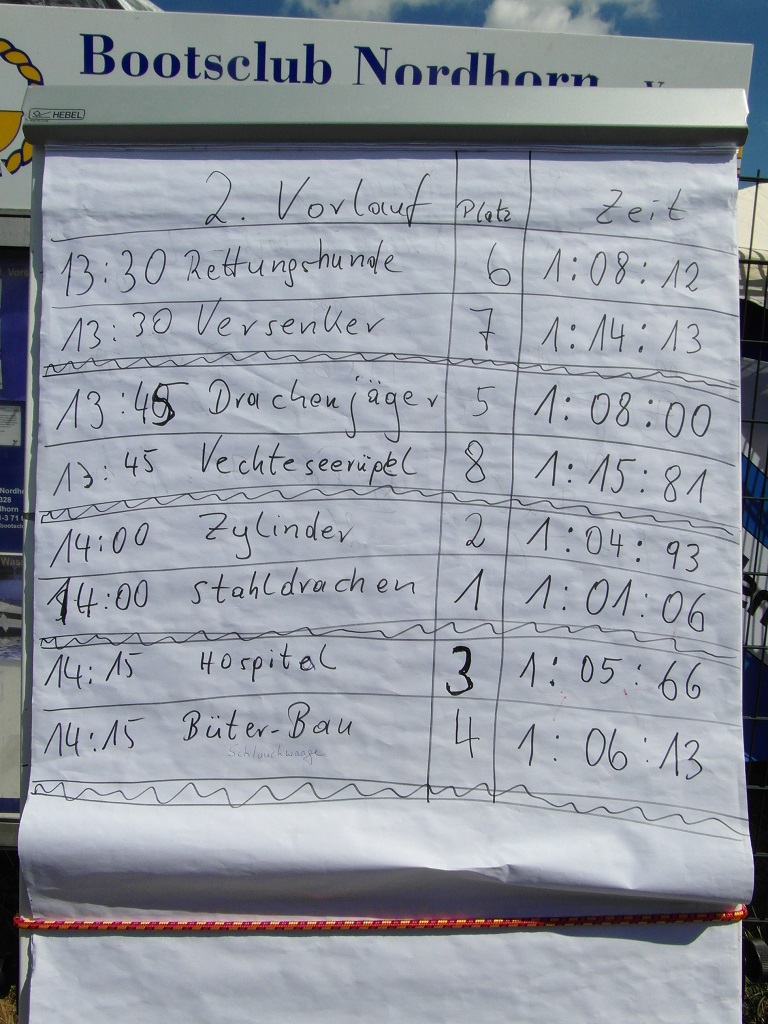 Bootsclub Nordhorn
HEBEL
2. Vorlauf Platz Zeit
13:30 Rettungshunde 6 1:08:12
13:30 Versenker 7 1:14:13
13:45 Drachenjäger 5 1:08:00
13:45 Vechteseerüpel 8 1:15:81
14:00 Zylinder 2 1:04:93
14:00 Stahldrachen 1 1:01:06
14:15 Hospital 3 1:05:66
14:15 Büter-Bau 4 1:06:13
Schlauchwaage